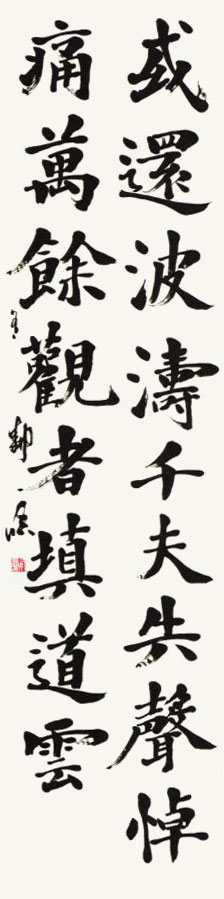 或還波濤千夫失聲悼
痛萬餘觀者填道雲